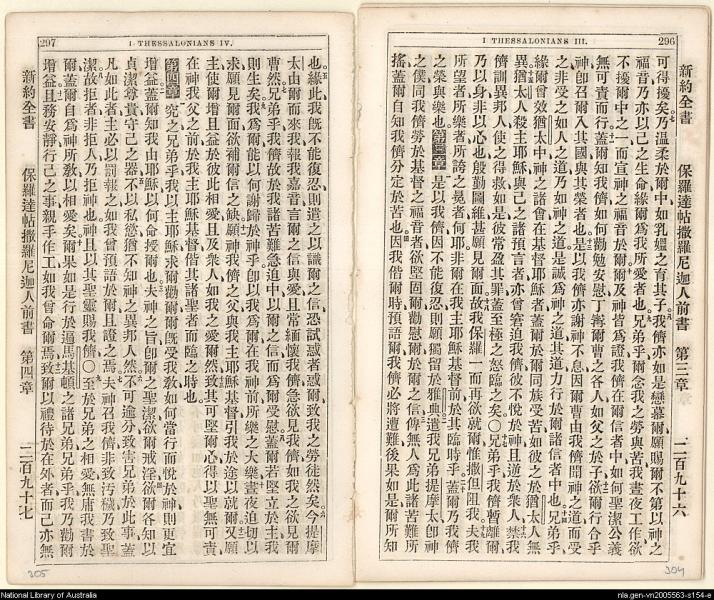 296
I THESSALONIANS III.
新約全書　保羅達帖撒羅尼迦人前書　第三章　二百九十六
可得擾矣乃温柔於爾中如乳媼之育其子我儕亦如是戀慕爾願賜爾不第以神之
福音乃亦以己之生命緣爾爲我所愛者也兄弟乎爾念我之勞與苦我晝夜工作欲
不擾爾中之一而宣神之福音於爾爾及神皆爲證我儕在爾信者中如何聖潔公義
無可責而行蓋爾知我儕如何勸勉安慰丁寧爾曹之各人如父之於子欲爾行合乎
神卽召爾入其國與其榮者也是以我儕亦謝神不息因爾曹由我儕聞神之道而受
之非受之如人之道乃如神之道是誠爲神之道其道力行於爾諸信者中也兄弟乎
緣爾曾效猶太中神之諸會在基督耶穌者蓋爾於爾同族受苦如彼之於猶太人無
異猶太人殺主耶穌與己之諸預言者亦曾窘迫我儕彼不悅於神且逆於衆人禁我
儕訓異邦人使之得救如是彼常盈其罪蓋至極之怒臨之矣○兄弟乎我儕暫離爾
乃以身非以心也慇勤圖維甚願見爾面故我保羅一而再欲就爾惟撒但阻我夫我
所望者所樂者所誇之冕者何耶非爾在我主耶穌基督前於其臨時乎蓋爾乃我儕
之榮與樂也第三章是以我儕因不能復忍則願獨留於雅典遣我兄弟提摩太卽神
之僕同我儕勞於基督之福音者欲堅固爾勸慰爾於爾之信俾無人爲此諸苦難所
搖蓋爾自知我儕分定於苦也因我偕爾時預語爾我儕必將遭難後果如是爾所知
304
297
I THESSALONIANS IV.
也緣此我旣不能復忍則遣之以識爾之信恐試惑者惑爾致我之勞徒然矣今提摩
太由爾而來我報我嘉音言爾之信與愛且常緬懷我儕急欲見我儕如我之欲見爾
曹然兄弟乎我儕故於我諸苦難急迫中以爾之信而爲爾受慰蓋爾若堅立於主我
則生矣我爲爾能以何謝歸於神乎卽以我爲爾在我神前所樂之大樂晝夜迫切以
求願見爾面而欲補爾信之缺願神我儕之父與我主耶穌基督引我於途以就爾又願
主使爾增且益於彼此相愛且及衆人如我之愛爾然致其可堅爾心得以聖無可責
在神我父之前於我主耶穌基督偕其諸聖者而臨之時也
第四章 究之兄弟乎我以主耶穌求爾勸爾爾旣受我敎如何當行而悅於神則更宜
增益蓋爾知我由耶穌以何命授爾也夫神之旨卽爾之聖潔欲爾戒淫欲爾各知以
貞潔尊貴守己之器不以私慾猶不知神之異邦人然不可逾分致害兄弟於此事蓋
凡如此者主必以罰報之如我曾預語於爾且證之焉夫神召我儕非致汚穢乃致聖
潔故拒者非拒人乃拒神也神且以其聖靈賜我儕○至於兄弟之相愛無庸我書於
爾蓋爾自爲神所敎以相愛矣爾果如是行於遍馬基頓之諸兄弟兄弟乎我乃勸爾
增益且務安靜行己之事親手作工如我曾命爾焉致爾以禮待於在外者而己亦無
新約全書　保羅達帖撒羅尼迦人前書　第四章　二百九十七
305
National Library of Australia
nla.gen-vn2005563-s154-e